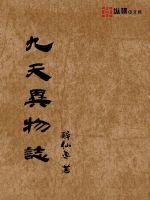 纵横中文网
九天異物誌
醉仙 著